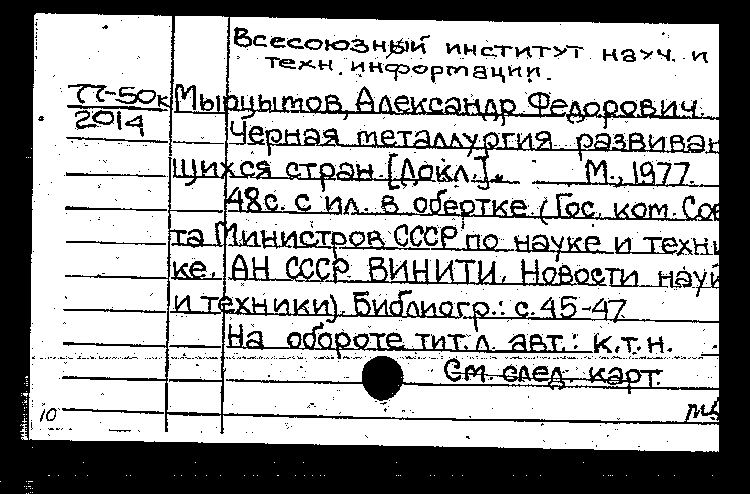 Всесоюзный институт науч. и
техн. информации.
77-50к
2014
Мырцымов, Александр Федорович.
Черная металлургия развиваю
щихся стран. [Докл.]. М., 1977.
48с. с ил. в обертке (Гос. ком. Сове
та Министров СССР по науке и техни
ке. АН СССР. ВИНИТИ. Новости науки
и техники). Библиогр.: с. 45-47
На обороте тит. л. авт.: к.т.н.
См. след. карт.
10